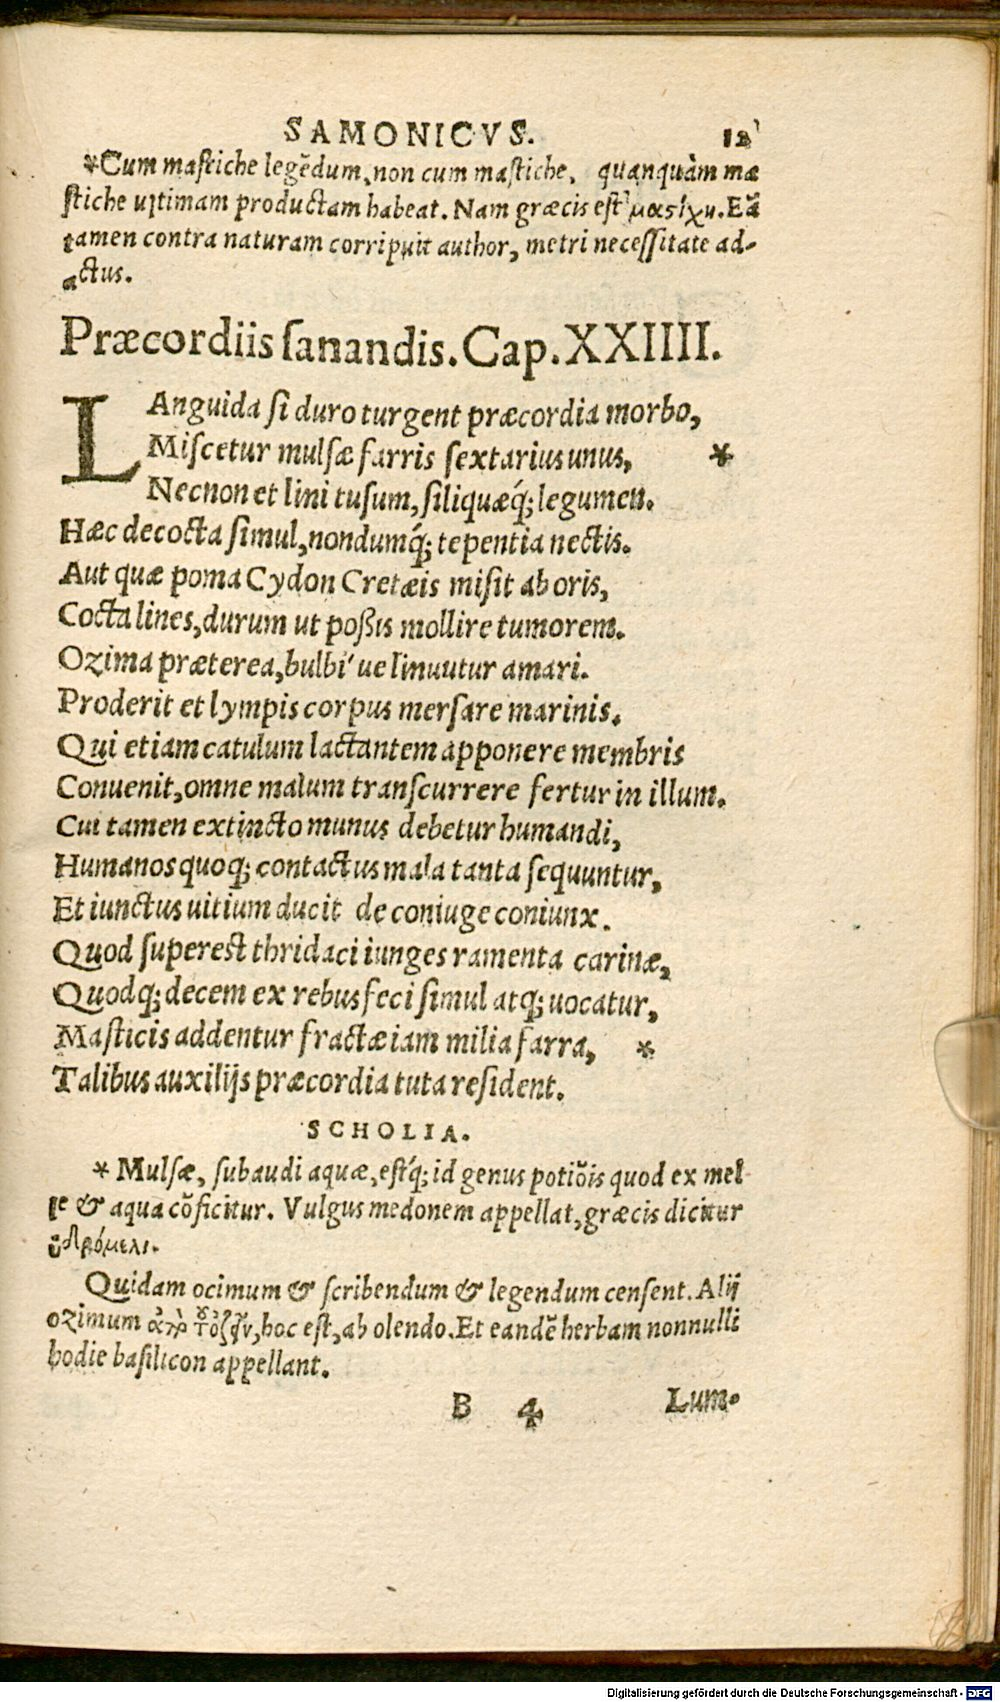 SAMONICVS. 12
*Cum mastiche legẽdum, non cum mastiche, quanquàm ma
stiche ultimam productam habeat. Nam græcis est μαςίχη. Eã
tamen contra naturam corripuit author, metri necessitate ad-
actus.
Præcordiis sanandis. Cap. XXIIII.
LAnguida si duro turgent præcordia morbo,
Miscetur mulsæ farris sextarius unus, *
Necnon et lini tusum, siliquæq́; legumen.
Hæc decocta simul, nondumq́; tepentia nectis.
Aut quæ poma Cydon Cretæis misit ab oris,
Cocta lines, durum ut possis mollire tumorem.
Ozima præterea, bulbi ue linuutur amari.
Proderit et lympis corpus mersare marinis.
Qui etiam catulum lactantem apponere membris
Conuenit, omne malum transcurrere fertur in illum.
Cui tamen extincto munus debetur humandi,
Humanos quoq; contactus mala tanta sequuntur,
Et iunctus uitium ducit de coniuge coniunx.
Quod superest thridaci iunges ramenta carinæ,
Quodq; decem ex rebus feci simul atq; uocatur,
Masticis addentur fractæ iam milia farra, *
Talibus auxilijs præcordia tuta resident.
SCHOLIA.
* Mulsæ, subaudi aquæ, estq́; id genus potiõis quod ex mel
le & aqua cõficitur. Vulgus medonem appellat, græcis dicitur
ὑδρόμελι.
Quidam ocimum & scribendum & legendum censent. Alij
ozimum ἀπὸ τοῦ ὄζειν, hoc est, ab olendo. Et eandẽ herbam nonnulli
hodie basilicon appellant.
B 4 Lum-
Digitalisierung gefördert durch die Deutsche Forschungsgemeinschaft - DFG